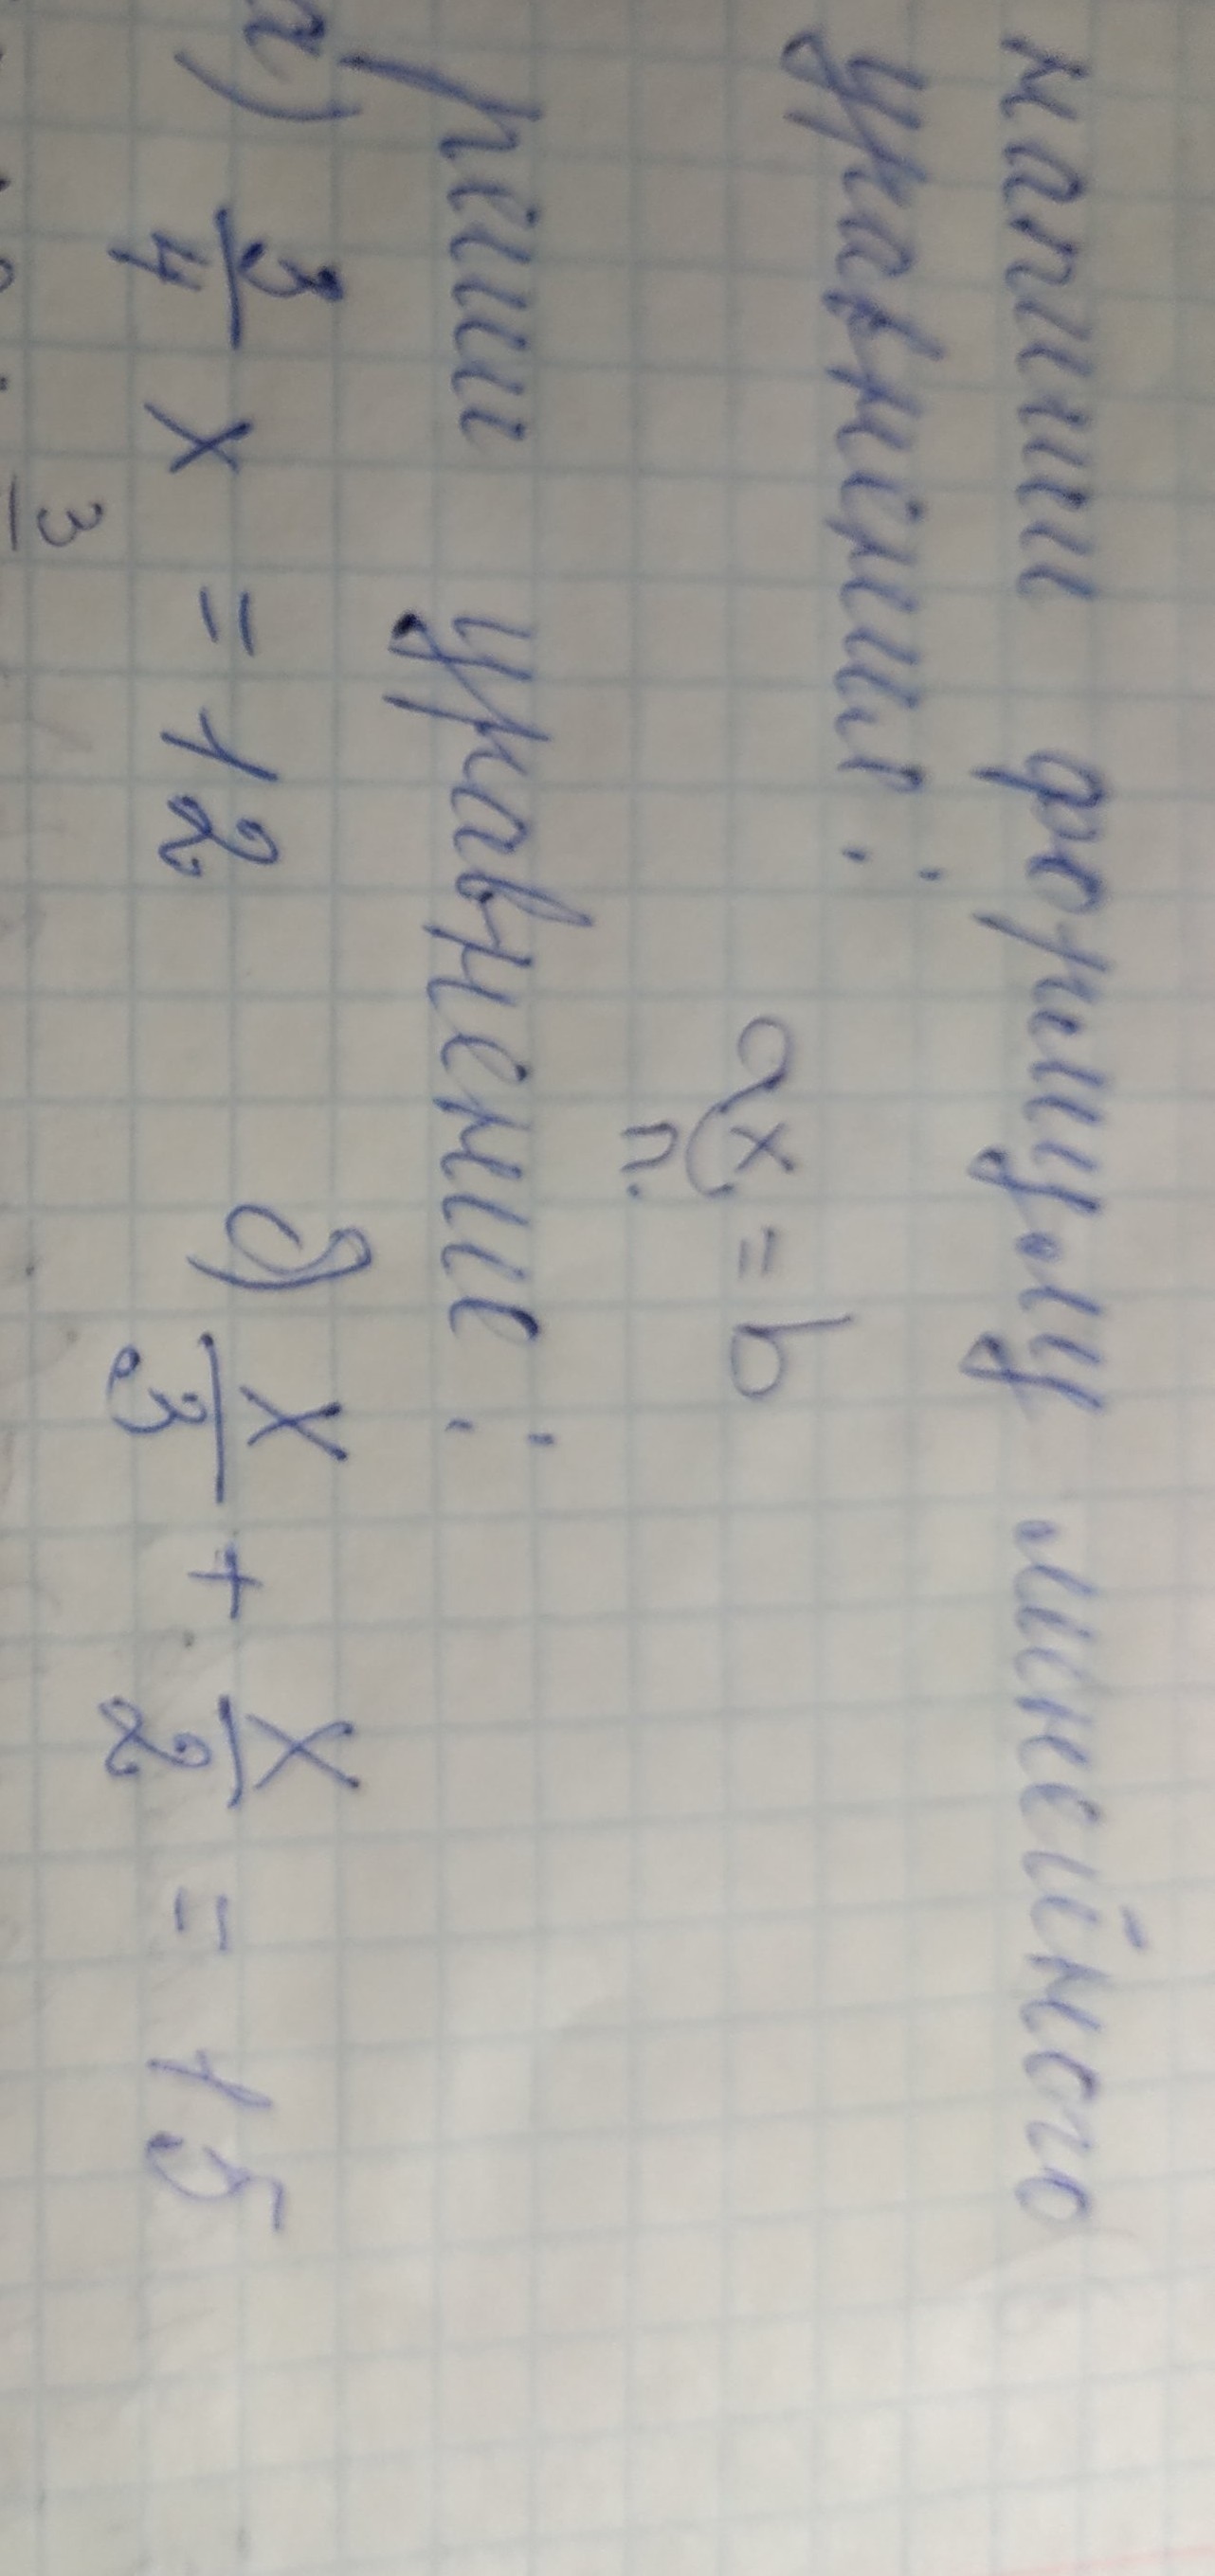 напиши формулу линейного
уравнения:
ax = b
п.
реши уравнение:
а) 3/4 x = 12 д) x/3 + x/2 = 15
3